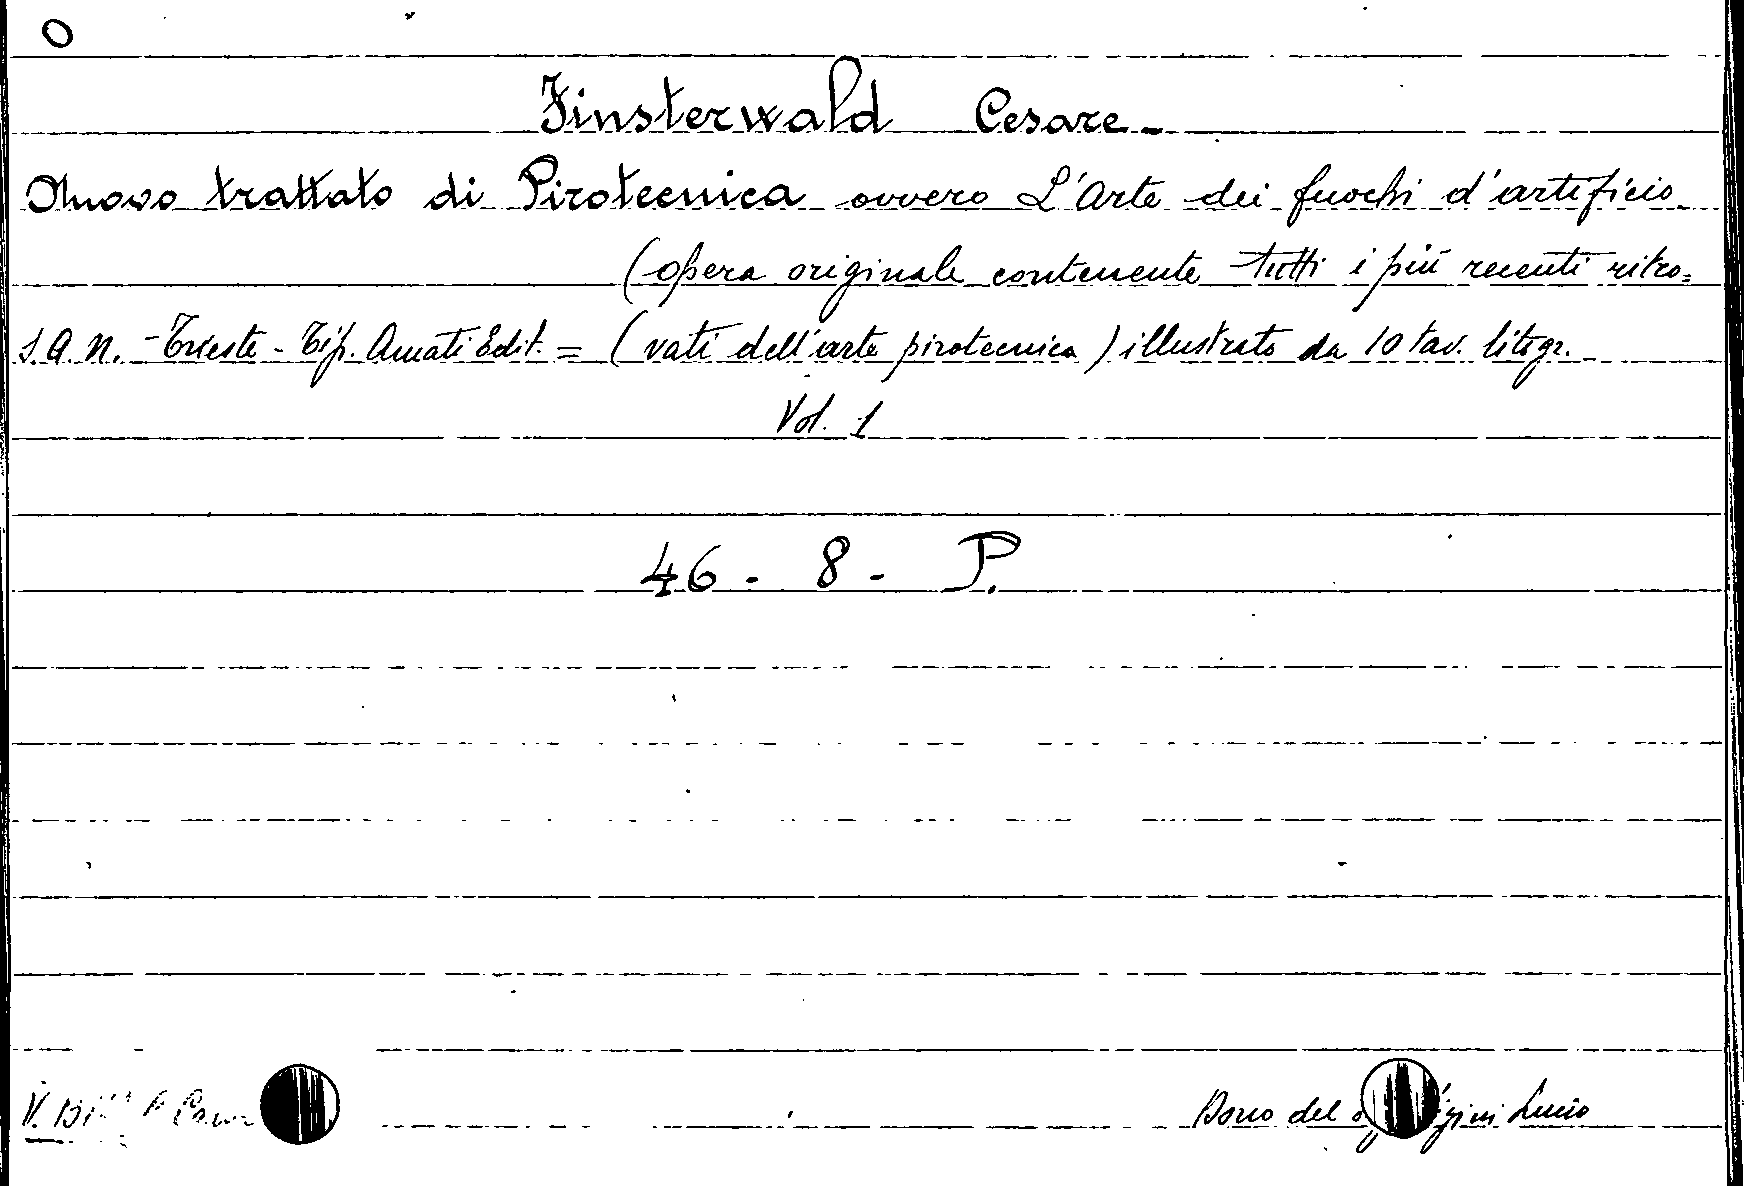 O
Finsterwald Cesare -
Nuovo trattato di Pirotecnica ovvero L'Arte dei fuochi d'artificio
(opera originale contenente tutti i più recenti ritro=
S.A.N. - Trieste - Tip. Amati Edit. = (vati dell'arte pirotecnica) illustrato da 10 tav. litogr.
Vol. 1
46 - 8 - P.
Dono del